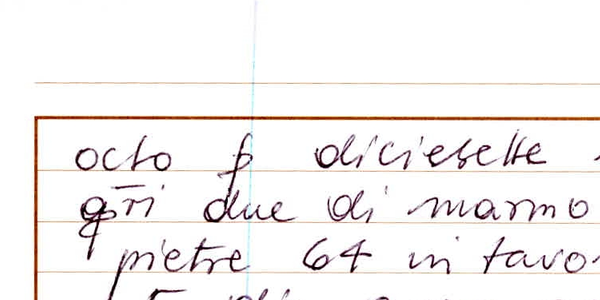 octo p diciesette
qri due di marmo
pietre 64 in tavo